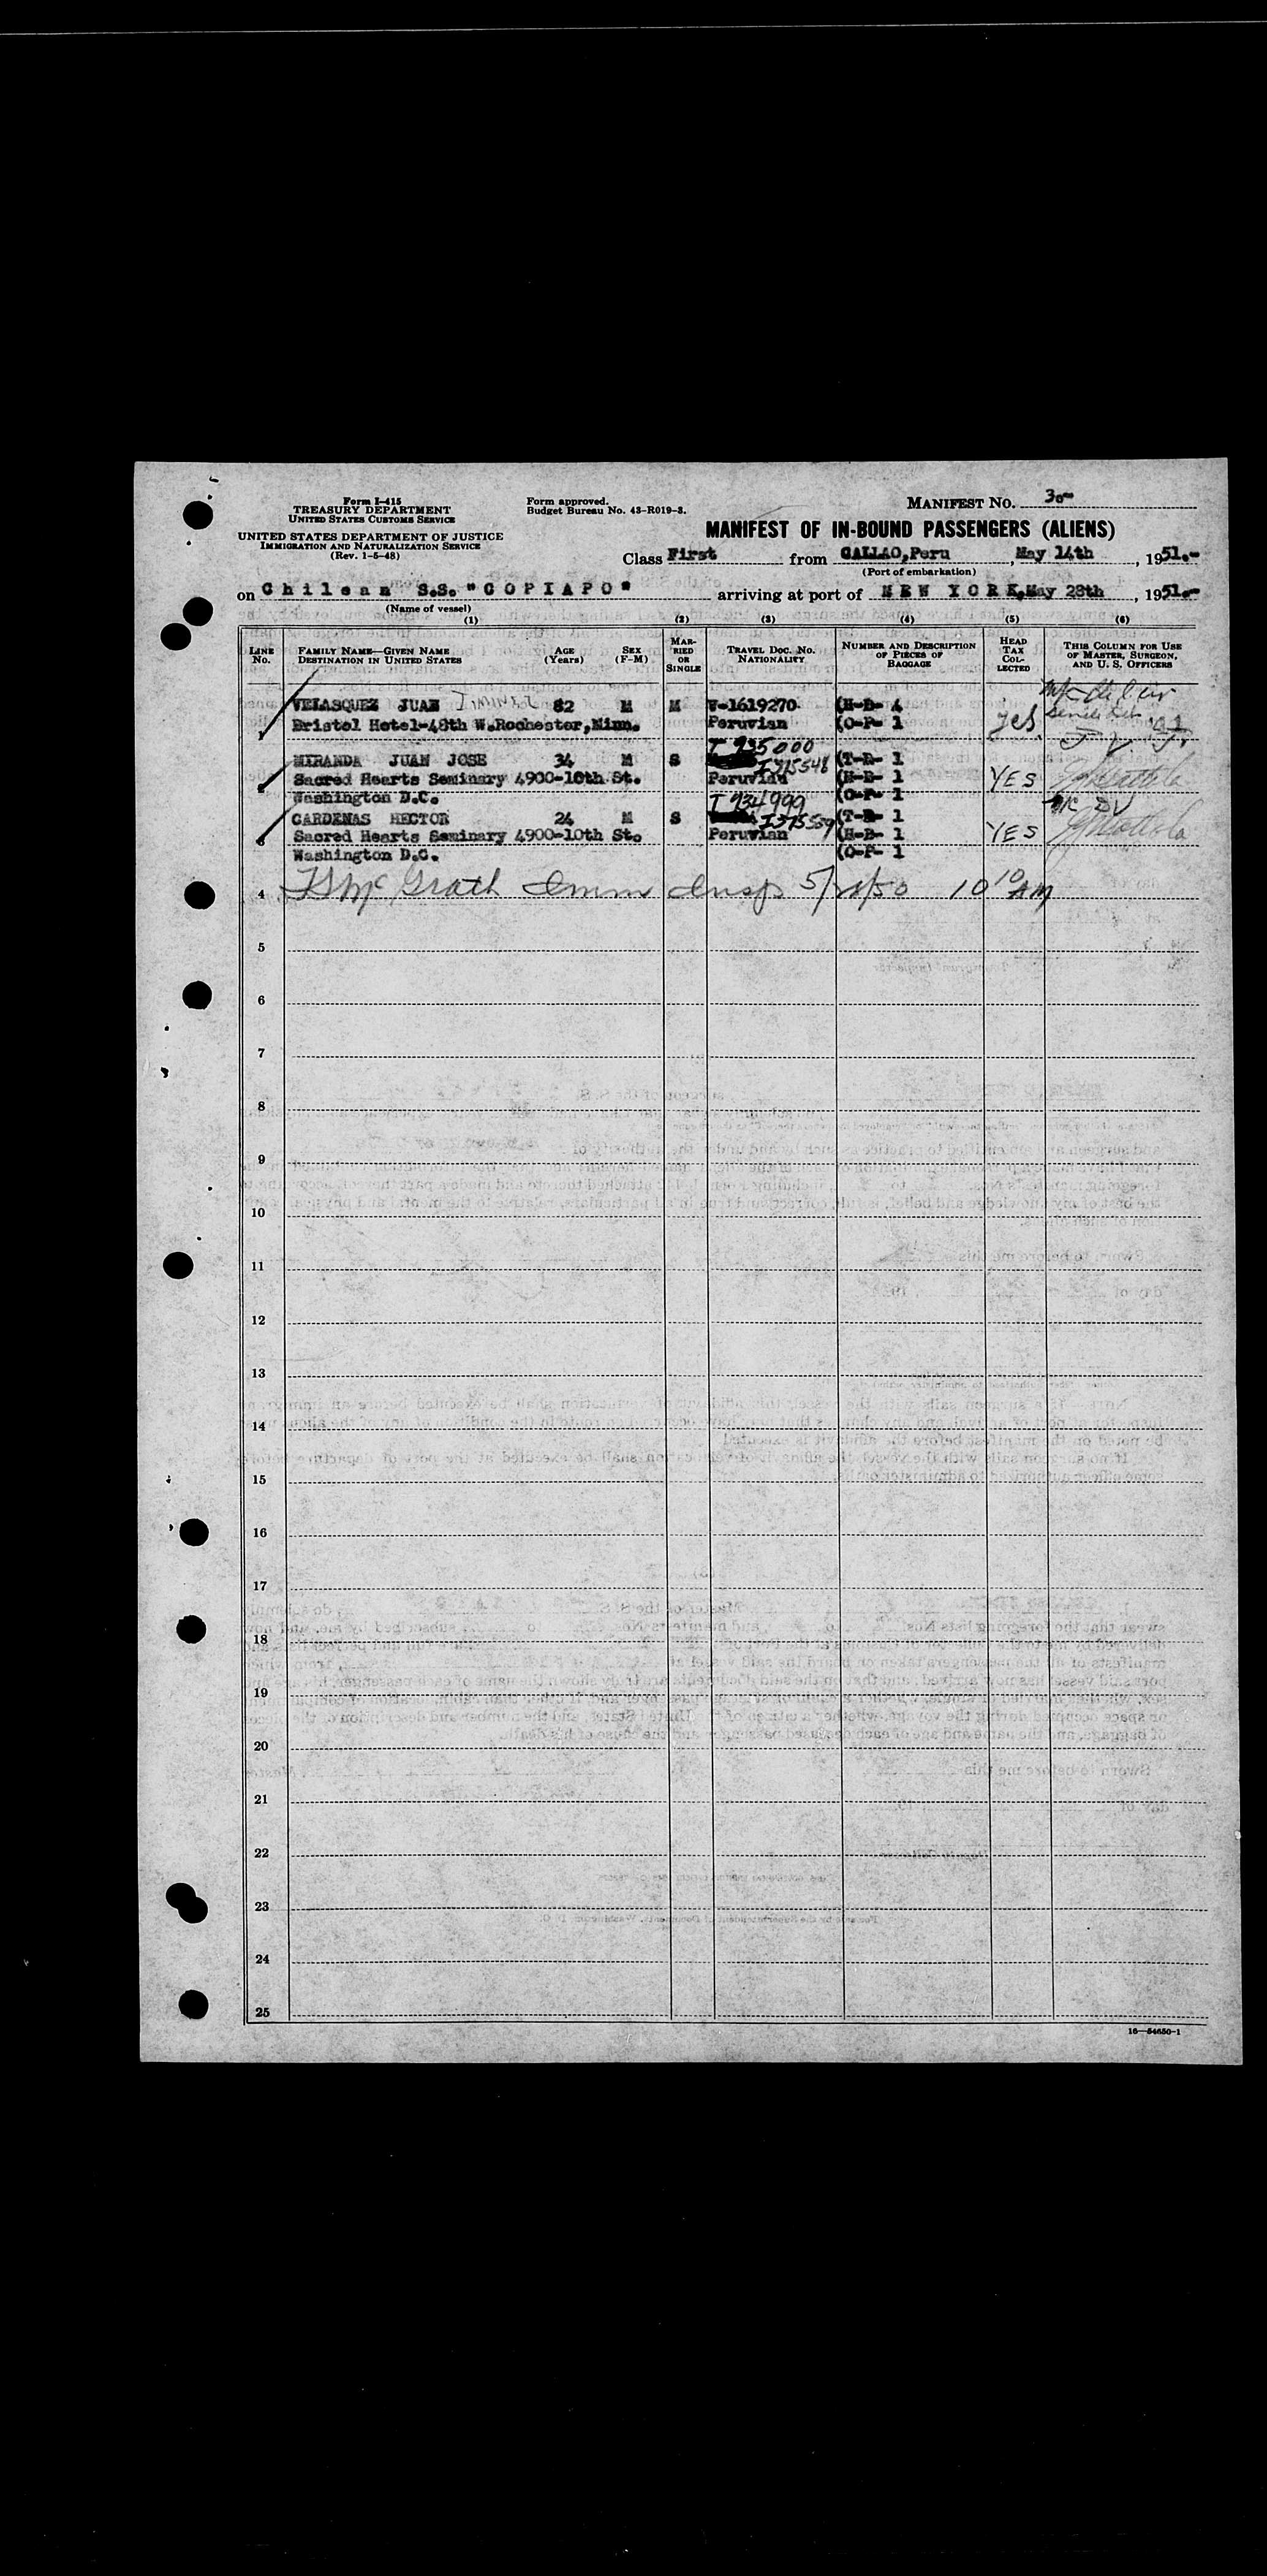 Form I-415
TREASURY DEPARTMENT
UNITED STATES CUSTOMS SERVICE
UNITED STATES DEPARTMENT OF JUSTICE
IMMIGRATION AND NATURALIZATION SERVICE
(Rev. 1-5-48)
Form approved.
Budget Bureau No. 43-R019-3.
MANIFEST NO. 30-
MANIFEST OF IN-BOUND PASSENGERS (ALIENS)
Class First from CALLAO,Peru, May 14th, 1951.-
(Port of embarkation)
on Chilean S.S. "COPIAPO" arriving at port of NEW YORK, May 28th, 1951.-
(Name of vessel)
(1) (2) (3) (4) (5) (6)
LINE No. FAMILY NAME—GIVEN NAME DESTINATION IN UNITED STATES AGE (Years) SEX (F-M) MARRIED OR SINGLE TRAVEL DOC. NO. NATIONALITY NUMBER AND DESCRIPTION OF PIECES OF BAGGAGE HEAD TAX COLLECTED THIS COLUMN FOR USE OF MASTER, SURGEON, AND U. S. OFFICERS
1 VELASQUEZ JUAN 82 M M V-1619270 (H-B- 4
Bristol Hotel-48th W.Rochester,Minn. Peruvian (O-P- 1 yes
T 935000
2 MIRANDA JUAN JOSE 34 M S I375548 (T-R- 1
Sacred Hearts Seminary 4900-10th St. Peruvian (H-B- 1 YES
Washington D.C. (O-P- 1
T 934999
3 CARDENAS HECTOR 24 M S (T-R- 1
Sacred Hearts Seminary 4900-10th St. Peruvian (H-B- 1 YES
Washington D.C. (O-P- 1
4 McGrath Imm Insp 10 10 AM
5
6
7
8
9
10
11
12
13
14
15
16
17
18
19
20
21
22
23
24
25
16—54650-1